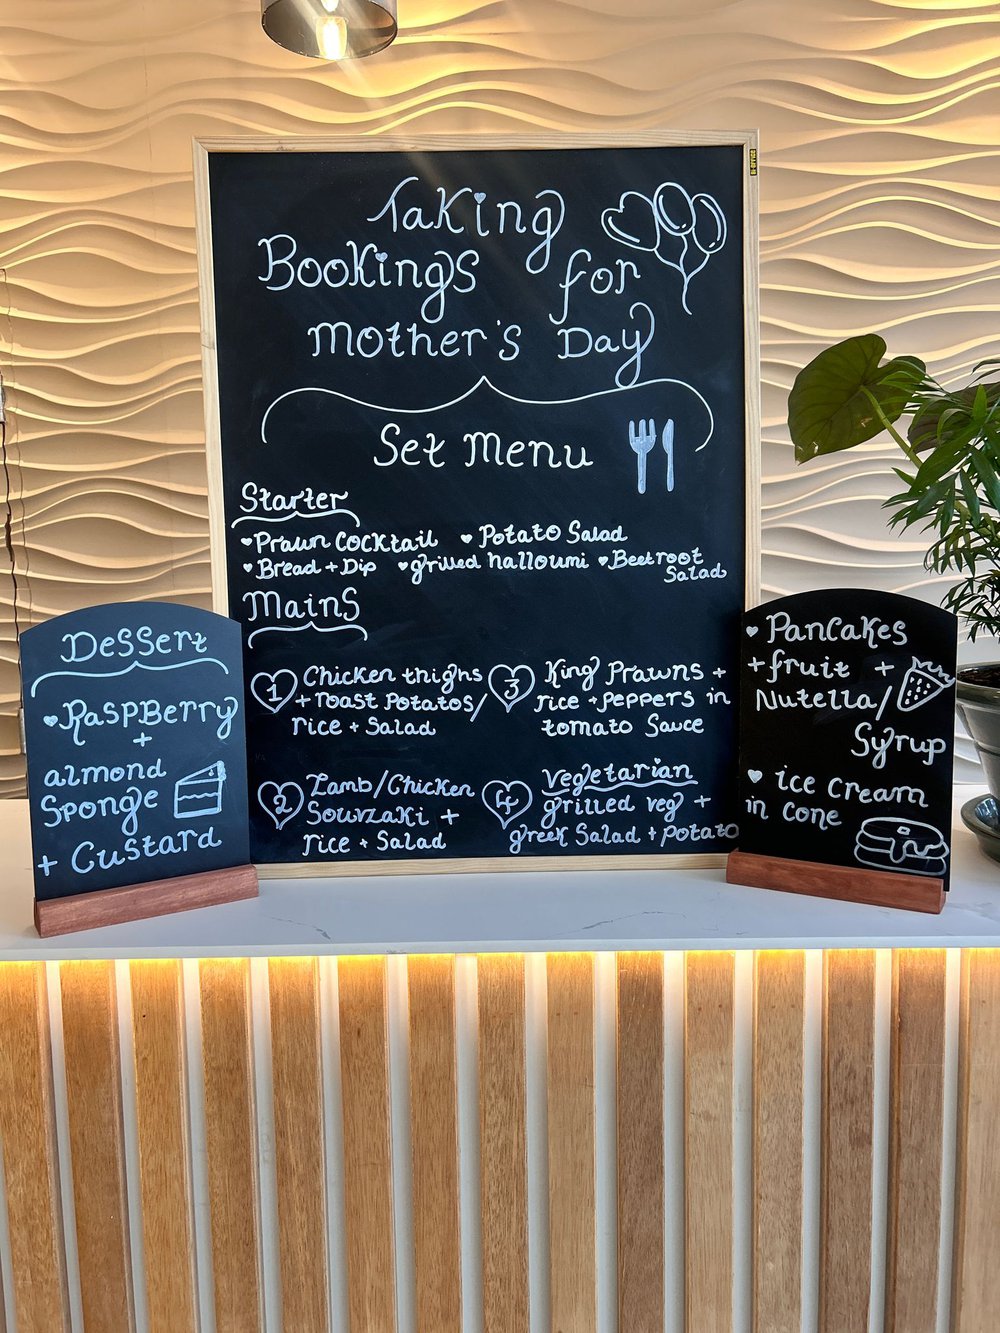 Taking
Bookings for
Mother's Day
Set Menu
Starter
Prawn Cocktail
Potato Salad
Bread + Dip
grilled halloumi
Beetroot
Salad
Mains
1 Chicken thighs
+ roast Potatos/
rice + Salad
2 Lamb/Chicken
Souvzaki +
rice + Salad
3 King Prawns +
rice + peppers in
tomato Sauce
4 Vegetarian
grilled veg +
greek Salad + potato
Dessert
Raspberry
+
almond
Sponge
+ Custard
Pancakes
+ fruit +
Nutella/
Syrup
ice Cream
in cone